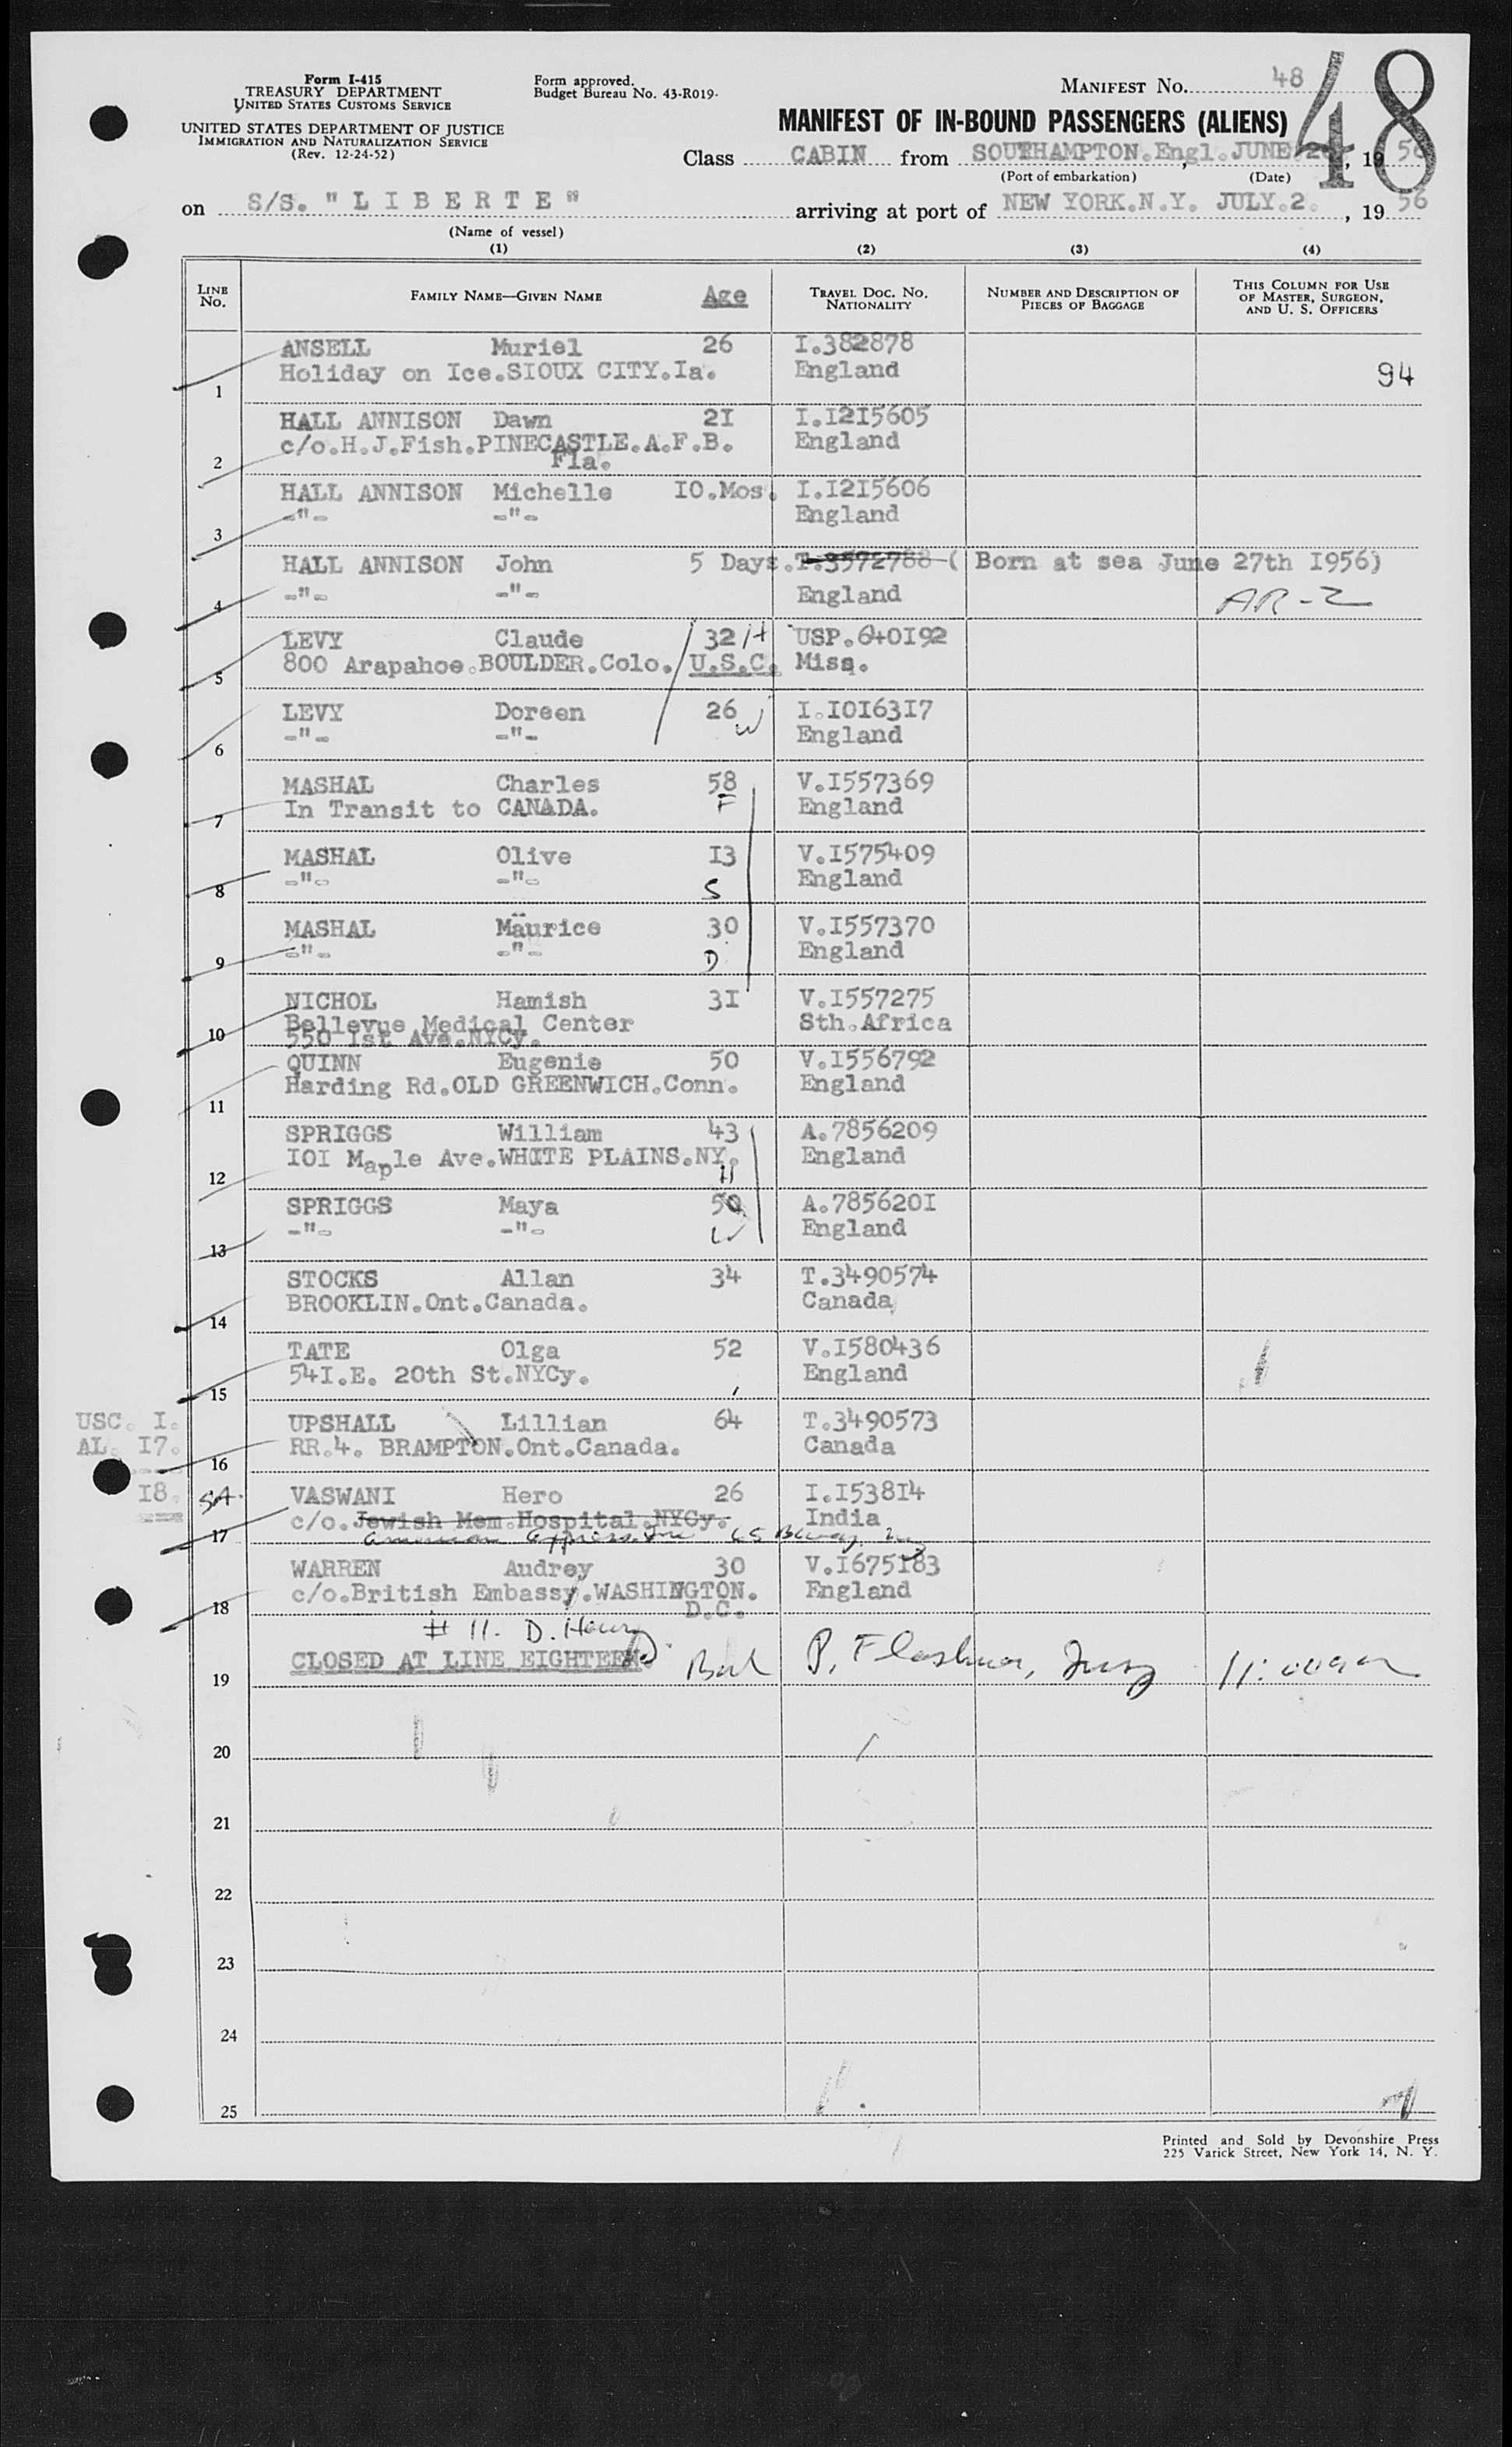 Form I-415
TREASURY DEPARTMENT
UNITED STATES CUSTOMS SERVICE
UNITED STATES DEPARTMENT OF JUSTICE
IMMIGRATION AND NATURALIZATION SERVICE
(Rev. 12-24-52)
Form approved.
Budget Bureau No. 43-R019.
MANIFEST No. 48
48
MANIFEST OF IN-BOUND PASSENGERS (ALIENS)
Class CABIN from SOUTHAMPTON.Engl.JUNE , 19 56
(Port of embarkation) (Date)
on S/S. "LIBERTE" arriving at port of NEW YORK.N.Y. JULY.2. , 19 56
(Name of vessel)
(1) (2) (3) (4)
LINE No. FAMILY NAME—GIVEN NAME Age TRAVEL DOC. NO. NATIONALITY NUMBER AND DESCRIPTION OF PIECES OF BAGGAGE THIS COLUMN FOR USE OF MASTER, SURGEON, AND U. S. OFFICERS
ANSELL Muriel 26 I.382878
1 Holiday on Ice.SIOUX CITY.Ia. England 94
HALL ANNISON Dawn 2I I.I2I5605
2 c/o.H.J.Fish.PINECASTLE.A.F.B. England
Fla.
HALL ANNISON Michelle IO.Mos. I.I2I5606
3 -"- -"- England
HALL ANNISON John 5 Days. T.3572788 ( Born at sea June 27th I956)
4 -"- -"- England AR-2
LEVY Claude 32 H USP.640I92
5 800 Arapahoe.BOULDER.Colo. U.S.C. Miss.
LEVY Doreen 26 W I.IOI63I7
6 -"- -"- England
MASHAL Charles 58 V.I557369
7 In Transit to CANADA. F England
MASHAL Olive I3 V.I575409
8 -"- -"- S England
MASHAL Maurice 30 V.I557370
9 -"- -"- D England
NICHOL Hamish 3I V.I557275
10 Bellevue Medical Center Sth.Africa
550 Ist Ave.NYCy.
QUINN Eugenie 50 V.I556792
11 Harding Rd.OLD GREENWICH.Conn. England
SPRIGGS William 43 A.7856209
12 IOI Maple Ave.WHITE PLAINS.NY. H England
SPRIGGS Maya 50 A.785620I
13 -"- -"- W England
STOCKS Allan 34 T.3490574
14 BROOKLIN.Ont.Canada. Canada
TATE Olga 52 V.I580436
15 54I.E. 20th St.NYCy. England
USC. I. UPSHALL Lillian 64 T.3490573
AL. I7. 16 RR.4. BRAMPTON.Ont.Canada. Canada
I8. VASWANI Hero 26 I.I538I4
17 c/o.Jewish Mem.Hospital.NYCy. India
American Express 65
WARREN Audrey 30 V.I675I83
18 c/o.British Embassy.WASHINGTON. England
D.C.
# 11. D.
19 CLOSED AT LINE EIGHTEEN. P. 11:00am
20
21
22
23
24
25
Printed and Sold by Devonshire Press
225 Varick Street, New York 14, N. Y.